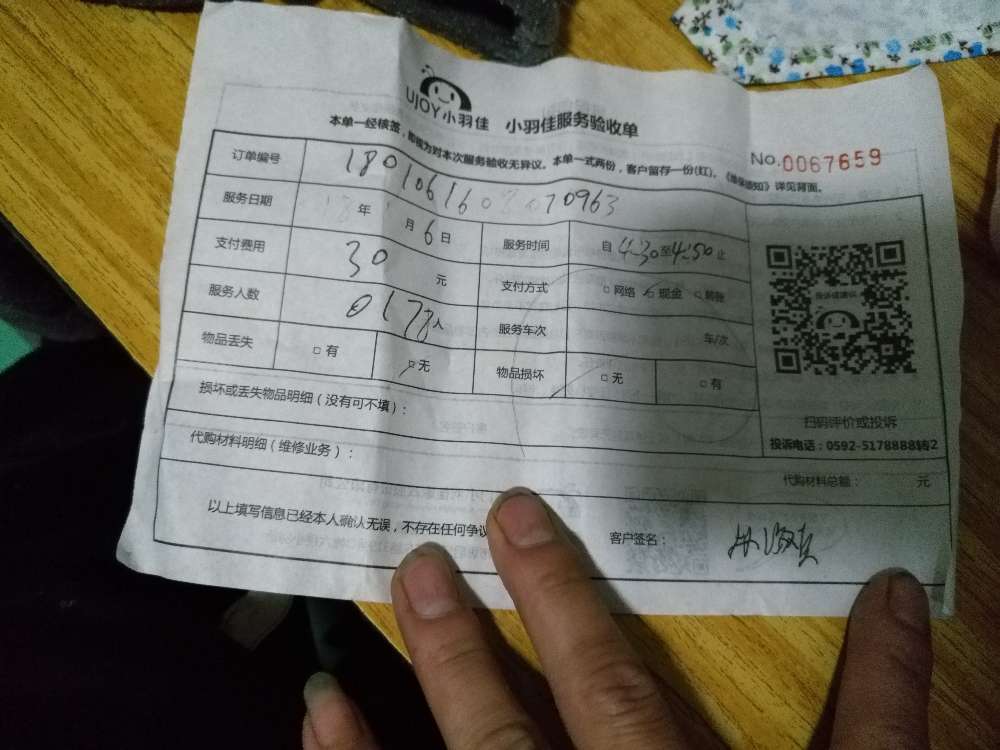 UJOY小羽佳 小羽佳服务验收单
本单一经核签，即视为对本次服务验收无异议。本单一式两份，客户留存一份(红)。《维保须知》详见背面。
No.0067659
订单编号 180106160
70963
服务日期 年 月 6 日 服务时间 自 4:30 至 4:50 止
支付费用 30 元 支付方式 □网络 □现金 □转账
服务人数 人 服务车次 车/次
物品丢失 □有 □无 物品损坏 □无 □有
损坏或丢失物品明细（没有可不填）：
扫码评价或投诉
投诉电话：0592-5178888转2
代购材料明细（维修业务）：
代购材料总额： 元
以上填写信息已经本人确认无误，不存在任何争议
客户签名：